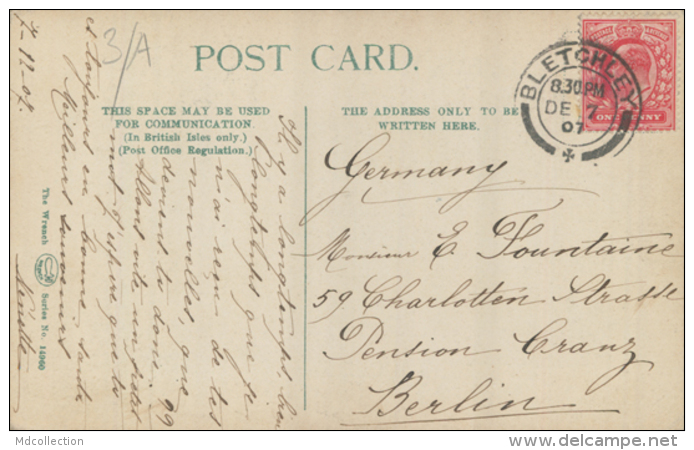 3/A
POST CARD.
THIS SPACE MAY BE USED
FOR COMMUNICATION.
(In British Isles only.)
(Post Office Regulation.)
THE ADDRESS ONLY TO BE
WRITTEN HERE.
BLETCHLEY
8.30 PM
DE 7
07
ONE PENNY
Germany
Monsieur E. Fountaine
59 Charlotten Strasse
Pension Cranz
Berlin
Il y a longtemps, bien
longtemps que je
n'ai reçu de tes
nouvelles, que
deviens tu donc. ??
Allons vite un petit
mot j'espère que tu
es toujours en bonne santé
Meilleurs souvenirs
7-12-07.
The Wrench Series No. 14960
Mdcollection
delcampe.net